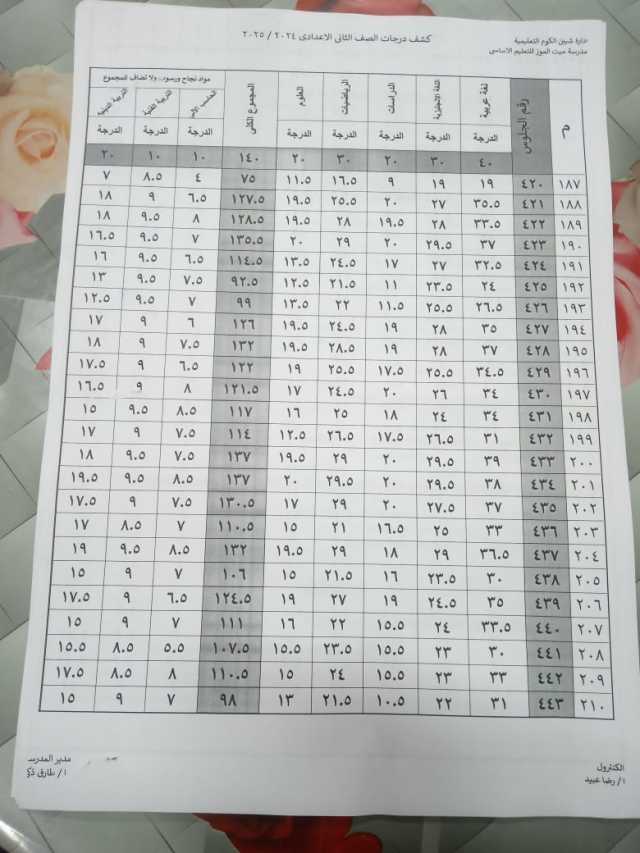 ادارة شبين الكوم التعليمية
مدرسة ميت الموز للتعليم الاساسى
كشف درجات الصف الثانى الاعدادى ٢٠٢٤ / ٢٠٢٥
م رقم الجلوس لغة عربية اللغة الانجليزية الدراسات الرياضيات العلوم المجموع الكلى مواد نجاح ورسوب.. ولا تضاف للمجموع
الحاسب الآلى التربية الفنية التربية الدينية
الدرجة الدرجة الدرجة الدرجة الدرجة الدرجة الدرجة الدرجة
٤٠ ٣٠ ٢٠ ٣٠ ٢٠ ١٤٠ ١٠ ١٠ ٢٠
١٨٧ ٤٢٠ ١٩ ١٩ ٩ ١٦.٥ ١١.٥ ٧٥ ٤ ٨.٥ ٧
١٨٨ ٤٢١ ٣٥.٥ ٢٧ ٢٠ ٢٥.٥ ١٩.٥ ١٢٧.٥ ٦.٥ ٩ ١٨
١٨٩ ٤٢٢ ٣٣.٥ ٢٨ ١٩.٥ ٢٨ ١٩.٥ ١٢٨.٥ ٨ ٩.٥ ١٨
١٩٠ ٤٢٣ ٣٧ ٢٩.٥ ٢٠ ٢٩ ٢٠ ١٣٥.٥ ٧ ٩.٥ ١٦.٥
١٩١ ٤٢٤ ٣٢.٥ ٢٧ ١٧ ٢٤.٥ ١٣.٥ ١١٤.٥ ٦.٥ ٩.٥ ١٦
١٩٢ ٤٢٥ ٢٤ ٢٣.٥ ١١ ٢١.٥ ١٢.٥ ٩٢.٥ ٧.٥ ٩.٥ ١٣
١٩٣ ٤٢٦ ٢٦.٥ ٢٥.٥ ١١.٥ ٢٢ ١٣.٥ ٩٩ ٧ ٩.٥ ١٢.٥
١٩٤ ٤٢٧ ٣٥ ٢٨ ١٩ ٢٤.٥ ١٩.٥ ١٢٦ ٦ ٩ ١٧
١٩٥ ٤٢٨ ٣٧ ٢٨ ١٩ ٢٨.٥ ١٩.٥ ١٣٢ ٧.٥ ٩ ١٨
١٩٦ ٤٢٩ ٣٤.٥ ٢٥.٥ ١٧.٥ ٢٥.٥ ١٩ ١٢٢ ٦.٥ ٩ ١٧.٥
١٩٧ ٤٣٠ ٣٤ ٢٦ ٢٠ ٢٤.٥ ١٧ ١٢١.٥ ٨ ٩ ١٦.٥
١٩٨ ٤٣١ ٣٤ ٢٤ ١٨ ٢٥ ١٦ ١١٧ ٨.٥ ٩.٥ ١٥
١٩٩ ٤٣٢ ٣١ ٢٦.٥ ١٧.٥ ٢٦.٥ ١٢.٥ ١١٤ ٧.٥ ٩ ١٧
٢٠٠ ٤٣٣ ٣٩ ٢٩.٥ ٢٠ ٢٩ ١٩.٥ ١٣٧ ٧.٥ ٩.٥ ١٨
٢٠١ ٤٣٤ ٣٨ ٢٩.٥ ٢٠ ٢٩.٥ ٢٠ ١٣٧ ٨.٥ ٩.٥ ١٩.٥
٢٠٢ ٤٣٥ ٣٧ ٢٧.٥ ٢٠ ٢٩ ١٧ ١٣٠.٥ ٧.٥ ٩ ١٧.٥
٢٠٣ ٤٣٦ ٣٣ ٢٥ ١٦.٥ ٢١ ١٥ ١١٠.٥ ٧ ٨.٥ ١٧
٢٠٤ ٤٣٧ ٣٦.٥ ٢٩ ١٨ ٢٩ ١٩.٥ ١٣٢ ٨.٥ ٩.٥ ١٩
٢٠٥ ٤٣٨ ٣٠ ٢٣.٥ ١٦ ٢١.٥ ١٥ ١٠٦ ٧ ٩ ١٥
٢٠٦ ٤٣٩ ٣٥ ٢٤.٥ ١٩ ٢٧ ١٩ ١٢٤.٥ ٦.٥ ٩ ١٧.٥
٢٠٧ ٤٤٠ ٣٣.٥ ٢٤ ١٥.٥ ٢٢ ١٦ ١١١ ٧ ٩ ١٥
٢٠٨ ٤٤١ ٣٠ ٢٣ ١٥.٥ ٢٣.٥ ١٥.٥ ١٠٧.٥ ٥.٥ ٨.٥ ١٥.٥
٢٠٩ ٤٤٢ ٣٣ ٢٣ ١٥.٥ ٢٤ ١٥ ١١٠.٥ ٨ ٨.٥ ١٧.٥
٢١٠ ٤٤٣ ٣١ ٢٢ ١٠.٥ ٢١.٥ ١٣ ٩٨ ٧ ٩ ١٥
الكنترول مدير المدرسـ
ا/ رضا عبيد ا / طارق